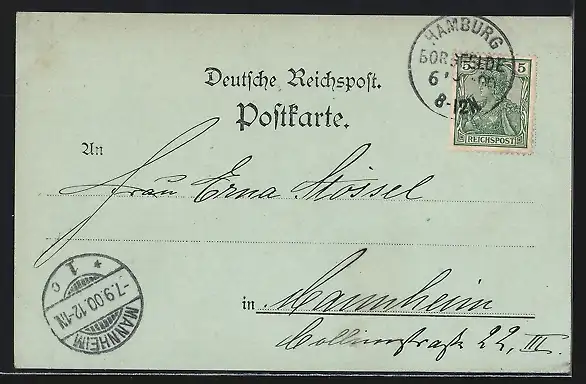 HAMBURG
BORGFELDE
8-12N
5 5
REICHSPOST
Deutsche Reichspost.
Postkarte.
An
Frau Erna Stössel
* 1 c
-7.9.00.12-1N
MANNHEIM
in Mannheim
Collinistraße 22, III.